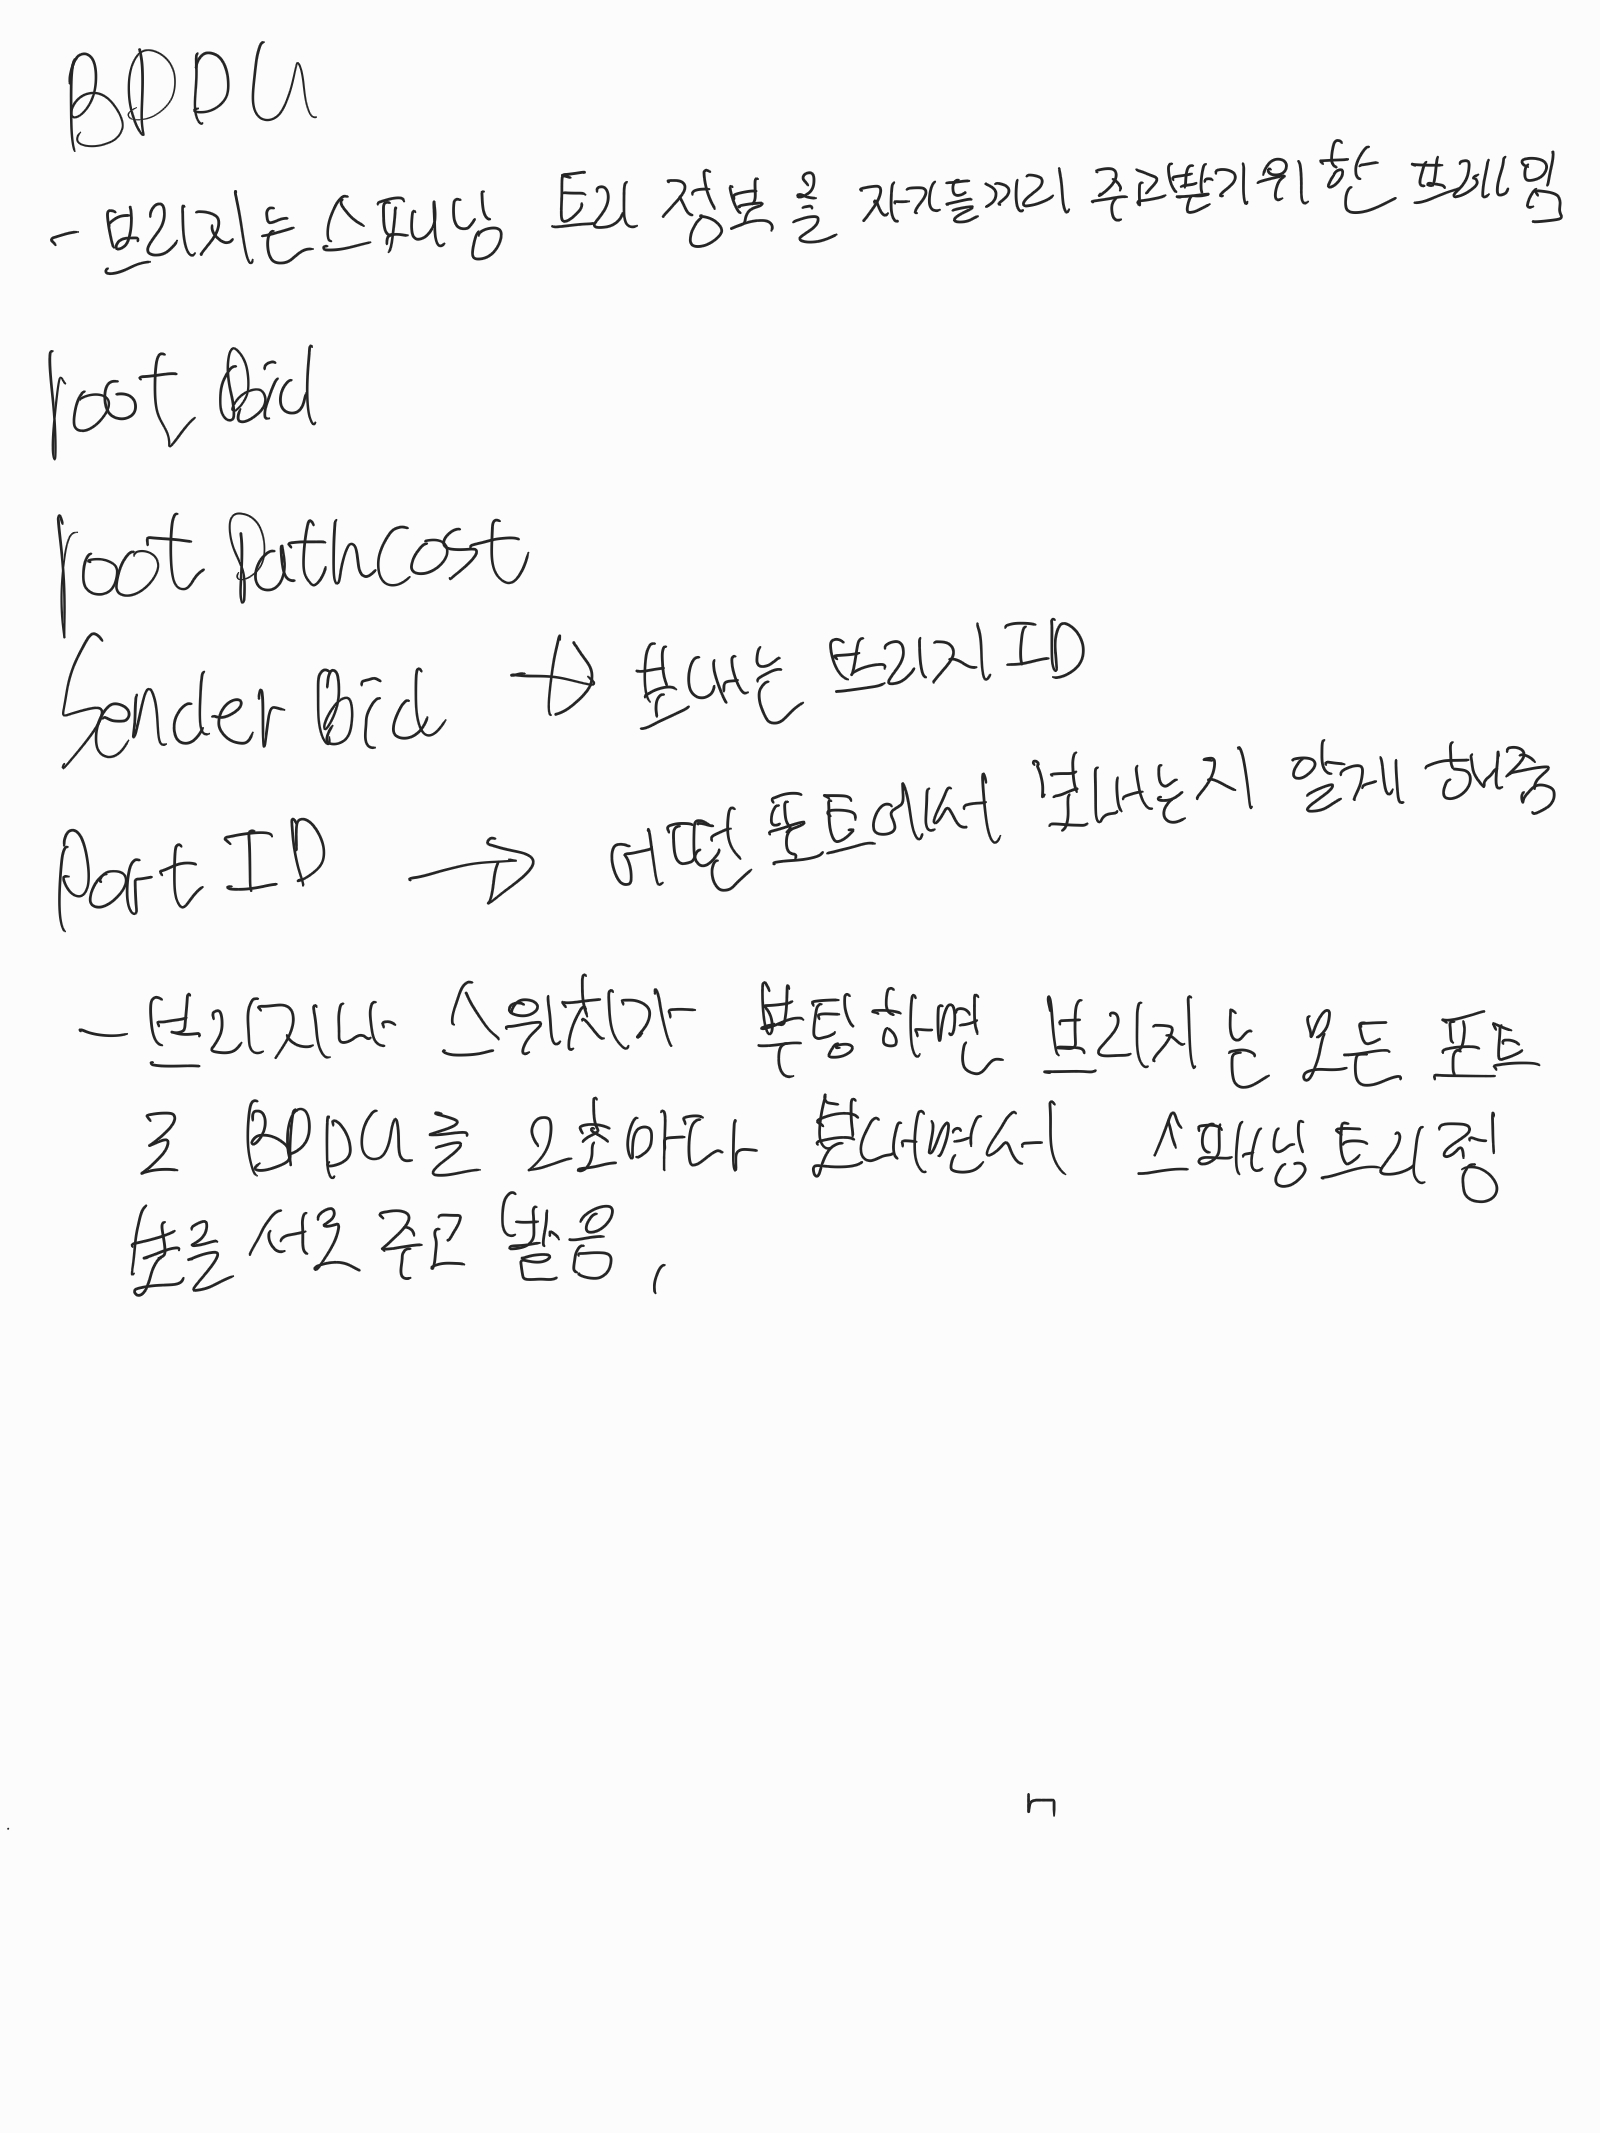 BPDU
- 브리지는 스패닝 트리 정보을 자기들끼리 주고받기위한 프레임
root Bid
root Pathcost
Sender Bid → 보내는 브리지 ID
Port ID → 어떤 포트에서 보내는지 알게 해줌
- 브리지나 스위치가 부팅하면 브리지는 모든 포트
로 BPDU를 2초마다 보내면서 스패닝트리 정
보를 서로 주고 받음,
ㄱ